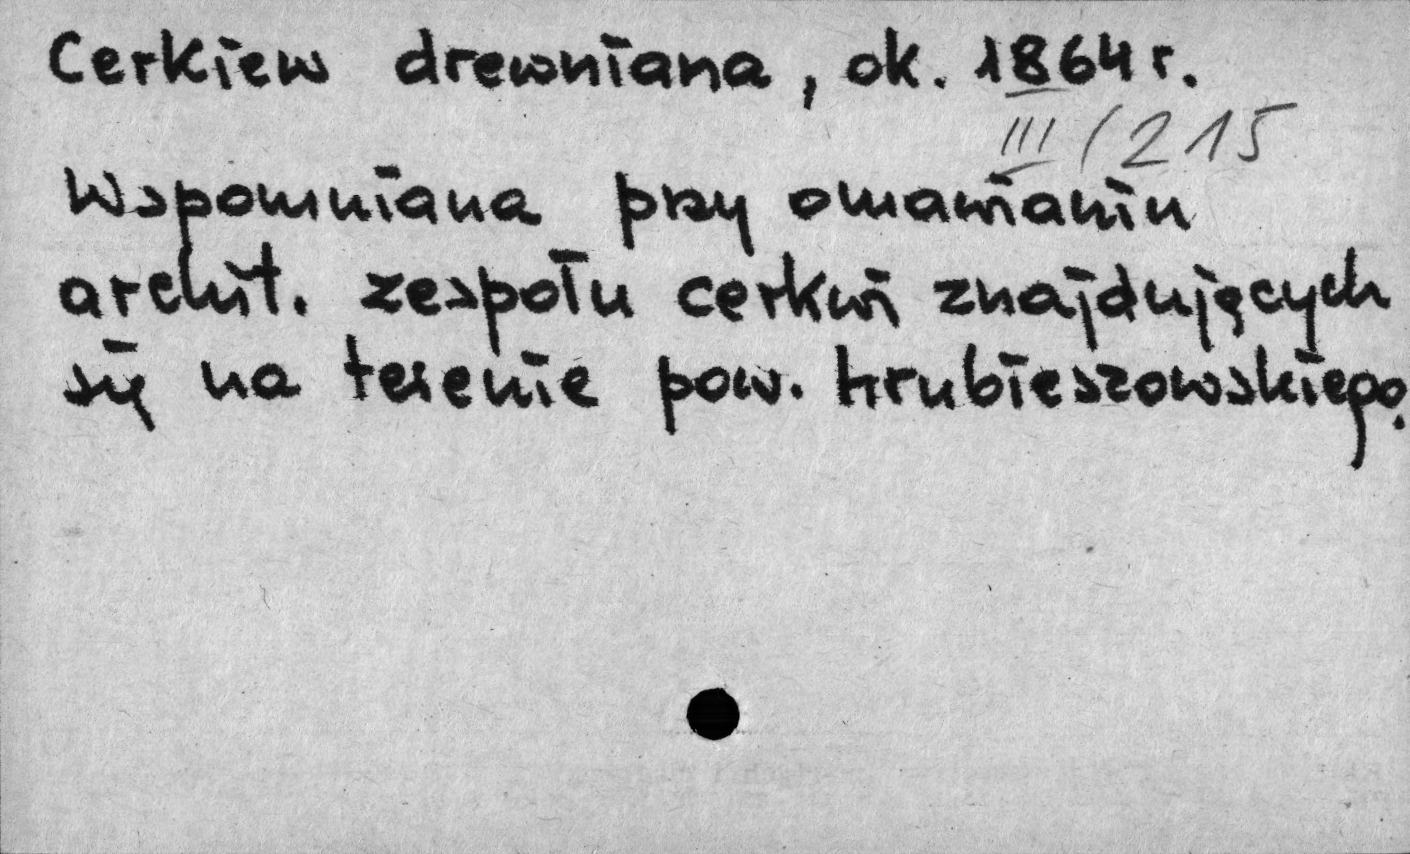 Cerkiew drewniana, ok. 1864 r.
III/215
Wspomniana przy omawianiu
archit. zespołu cerkwi znajdujących
się na terenie pow. hrubieszowskiego.